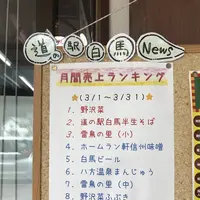 道の駅白馬News
月間売上ランキング
☆(3/1~3/31)☆
1. 野沢菜
2. 道の駅白馬半生そば
3. 雷鳥の里(小)
4. ホームラン軒信州味噌
5. 白馬ビール
6. 八方温泉まんじゅう
7. 雷鳥の里(中)
8. 野沢菜ふぶき